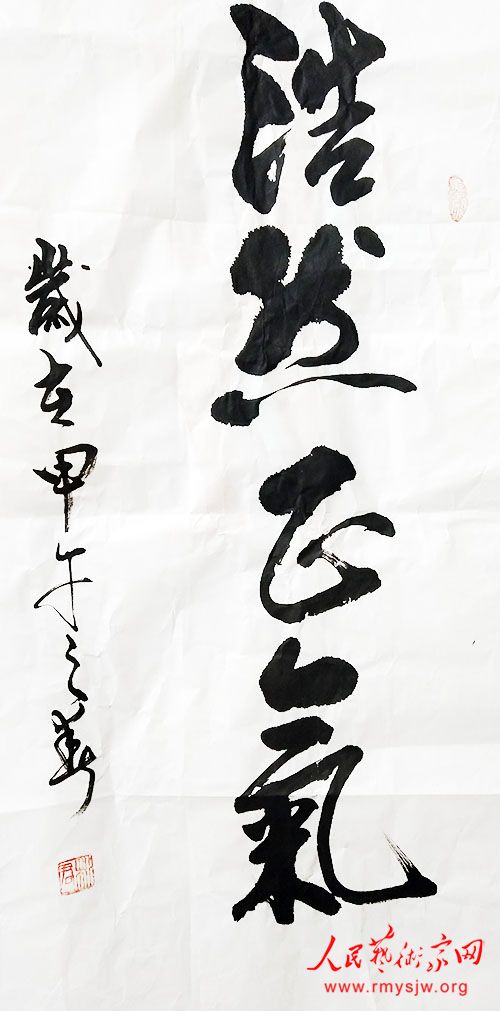 浩然正氣
歲在甲午之
人民藝術家网
www.rmysjw.org